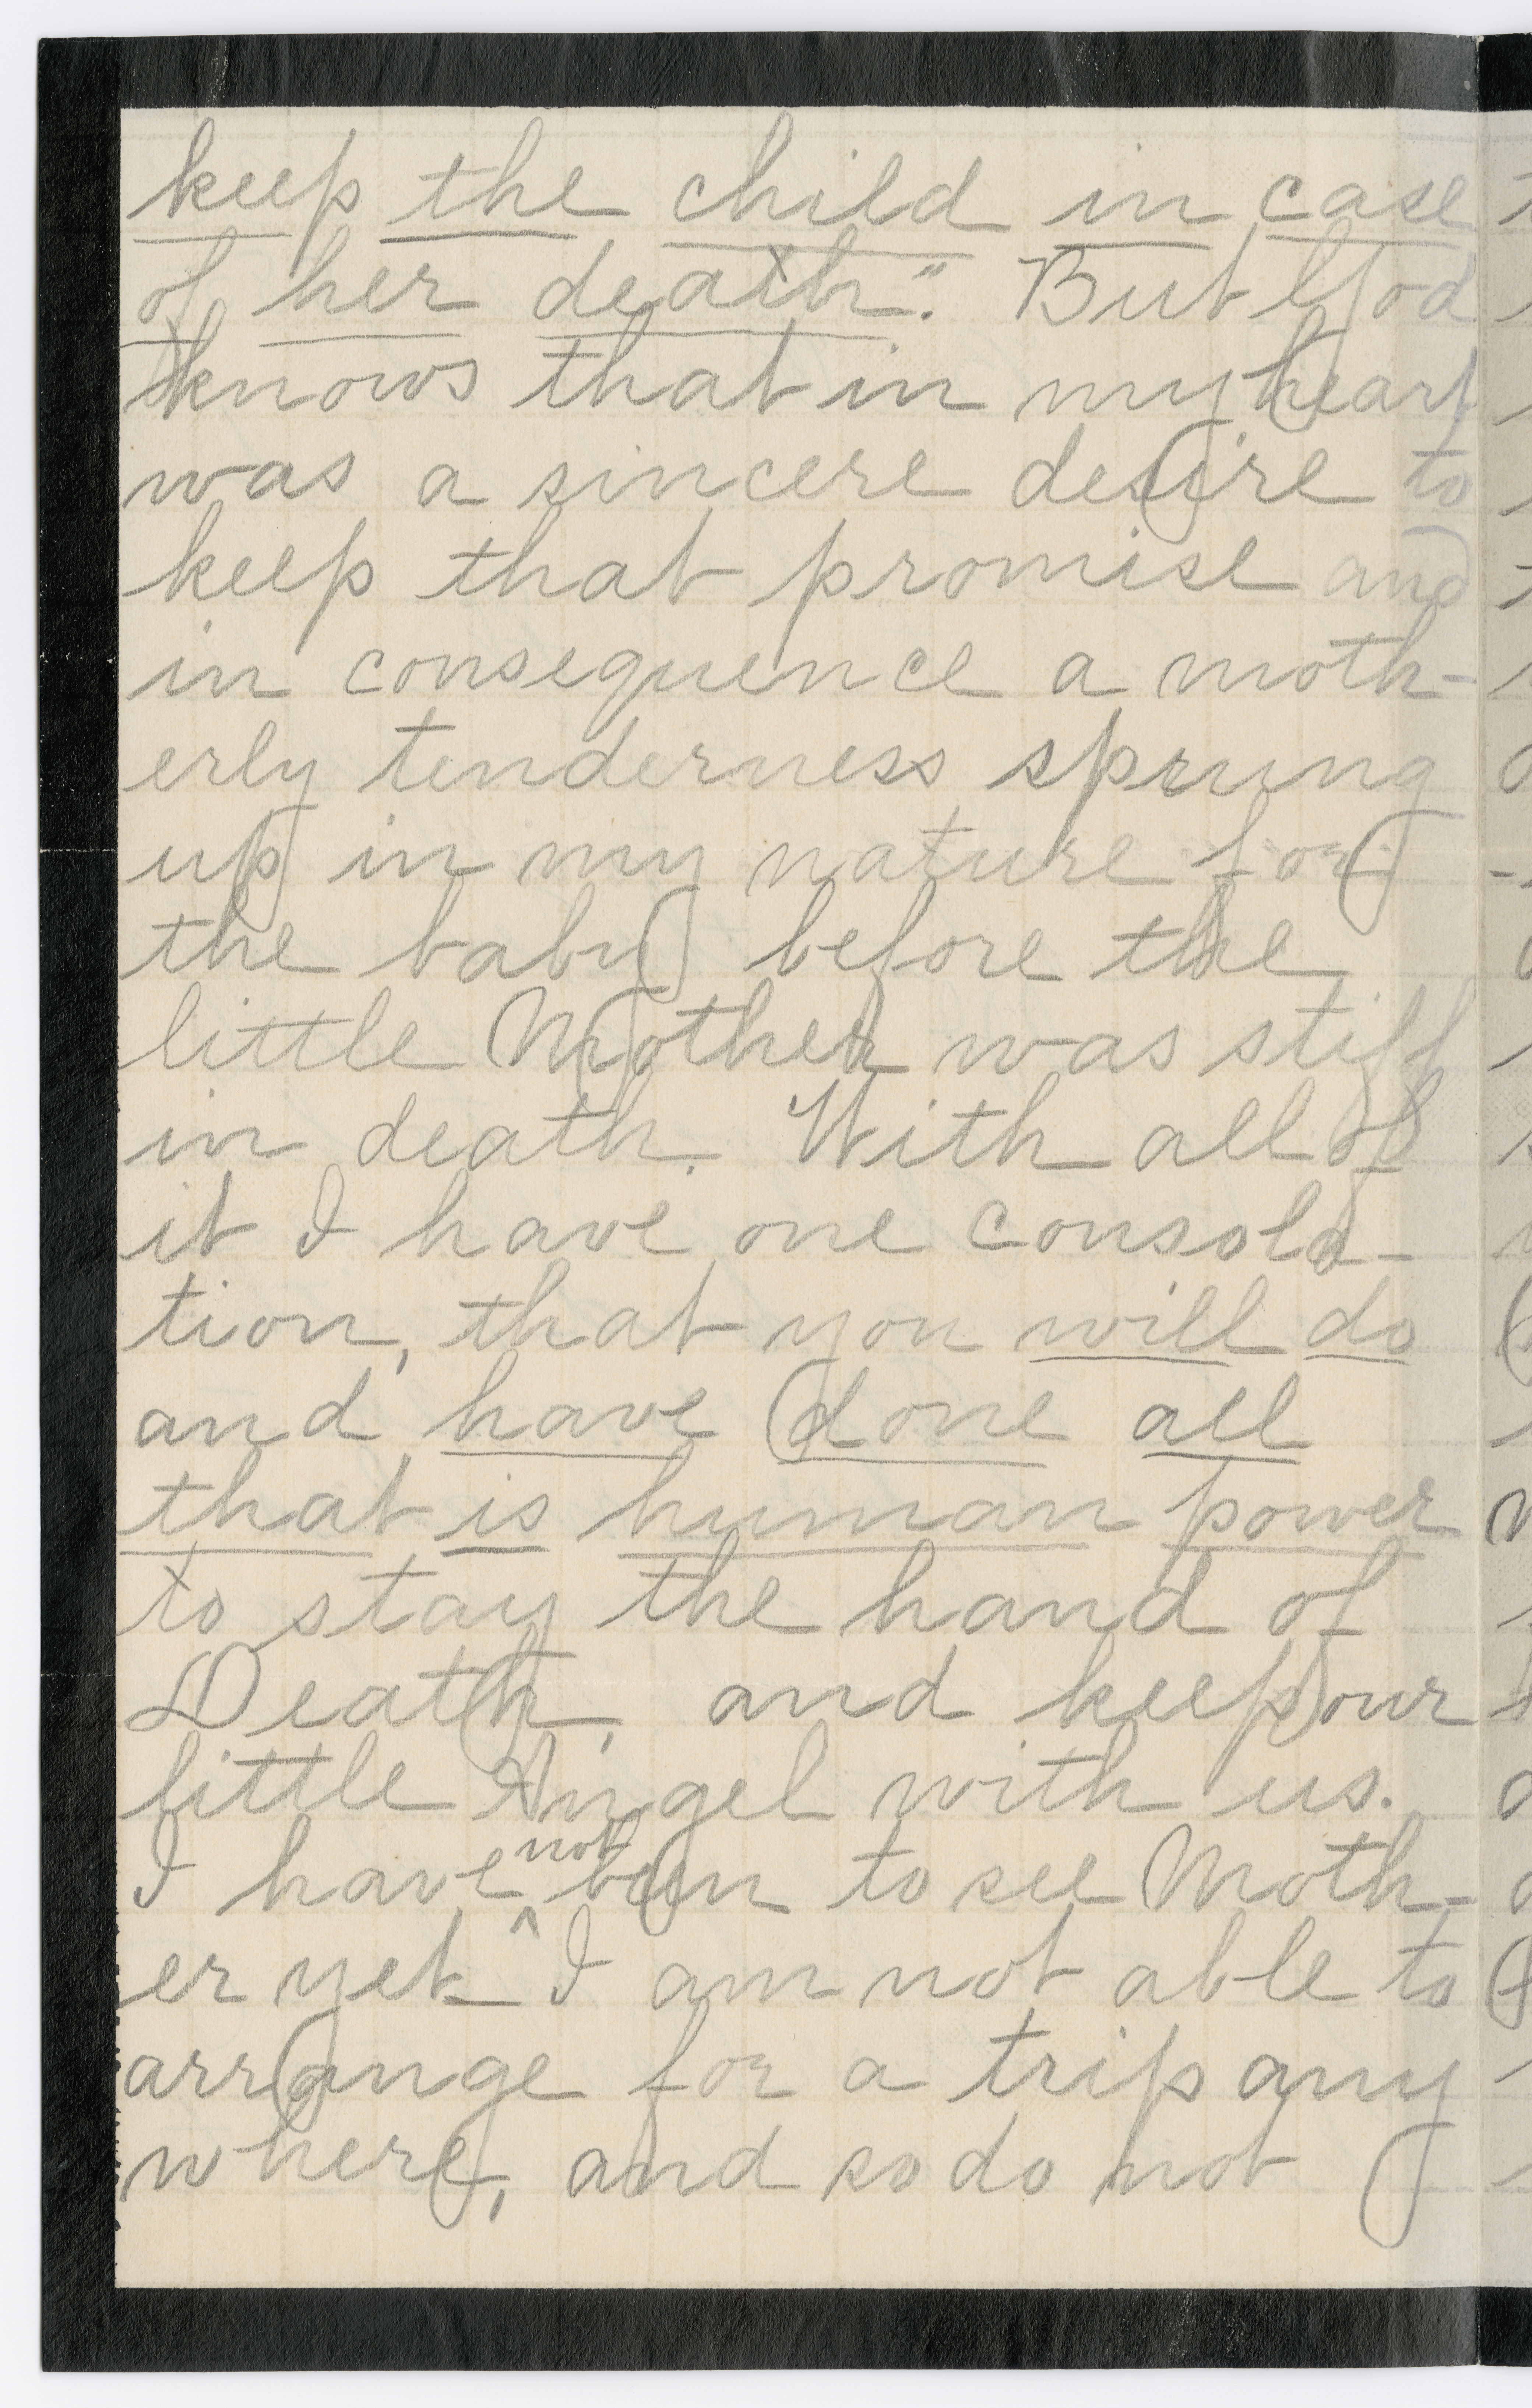 keep the child in case
of her death." But God
knows that in my heart
was a sincere desire to
keep that promise and
in consequence a moth-
erly tenderness sprung
up in my nature for
the baby before the
little Mother was stiff
in death. With all of
it I have one consola-
tion, that you will do
and have done all
that is human power
to stay the hand of
Death, and keep our
little Angel with us.
I have not been to see Moth-
er yet I am not able to
arrange for a trip any
where, and so do not